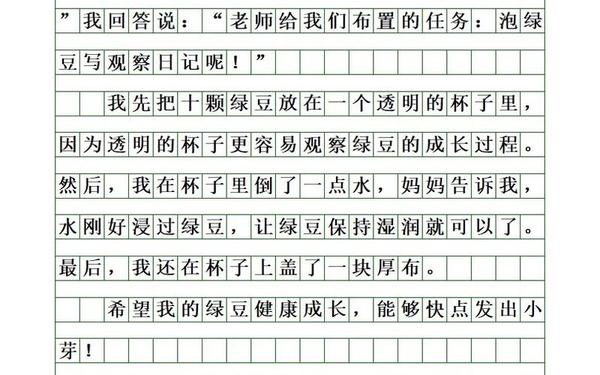 ”我回答说：“老师给我们布置的任务：泡绿
豆写观察日记呢！”
我先把十颗绿豆放在一个透明的杯子里，
因为透明的杯子更容易观察绿豆的成长过程。
然后，我在杯子里倒了一点水，妈妈告诉我，
水刚好浸过绿豆，让绿豆保持湿润就可以了。
最后，我还在杯子上盖了一块厚布。
希望我的绿豆健康成长，能够快点发出小
芽！